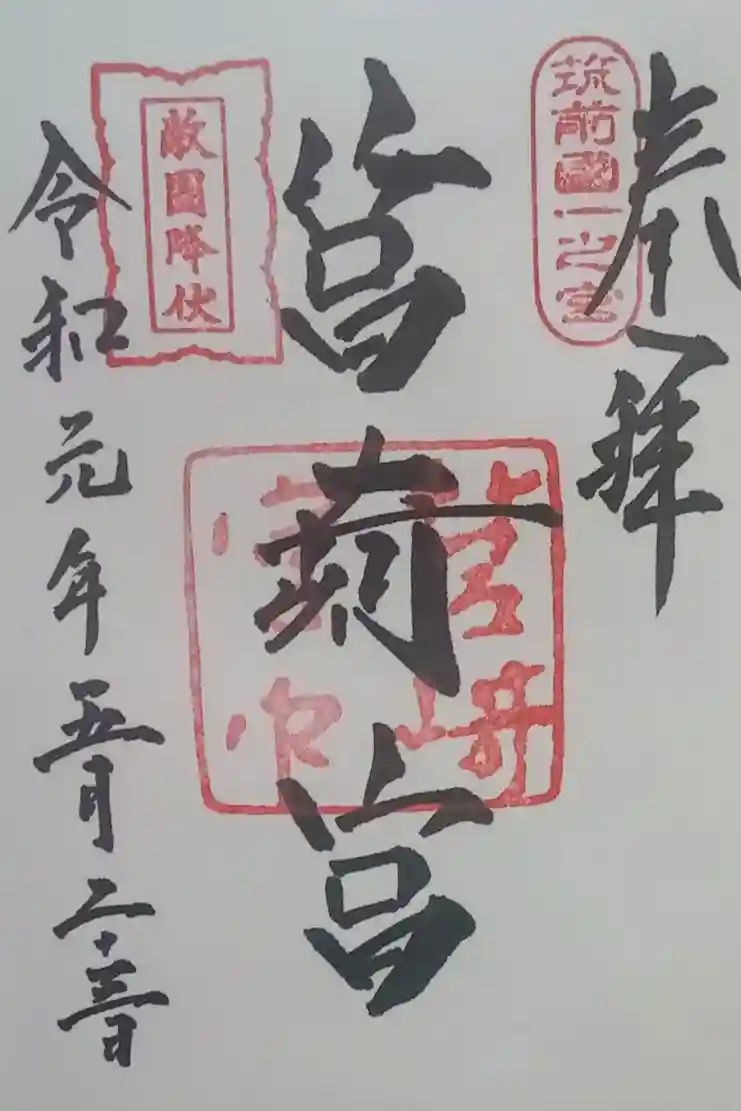 奉拝
筑前國一之宮
筥崎宮
筥崎
宮印
敵國降伏
令和元年五月二十三日